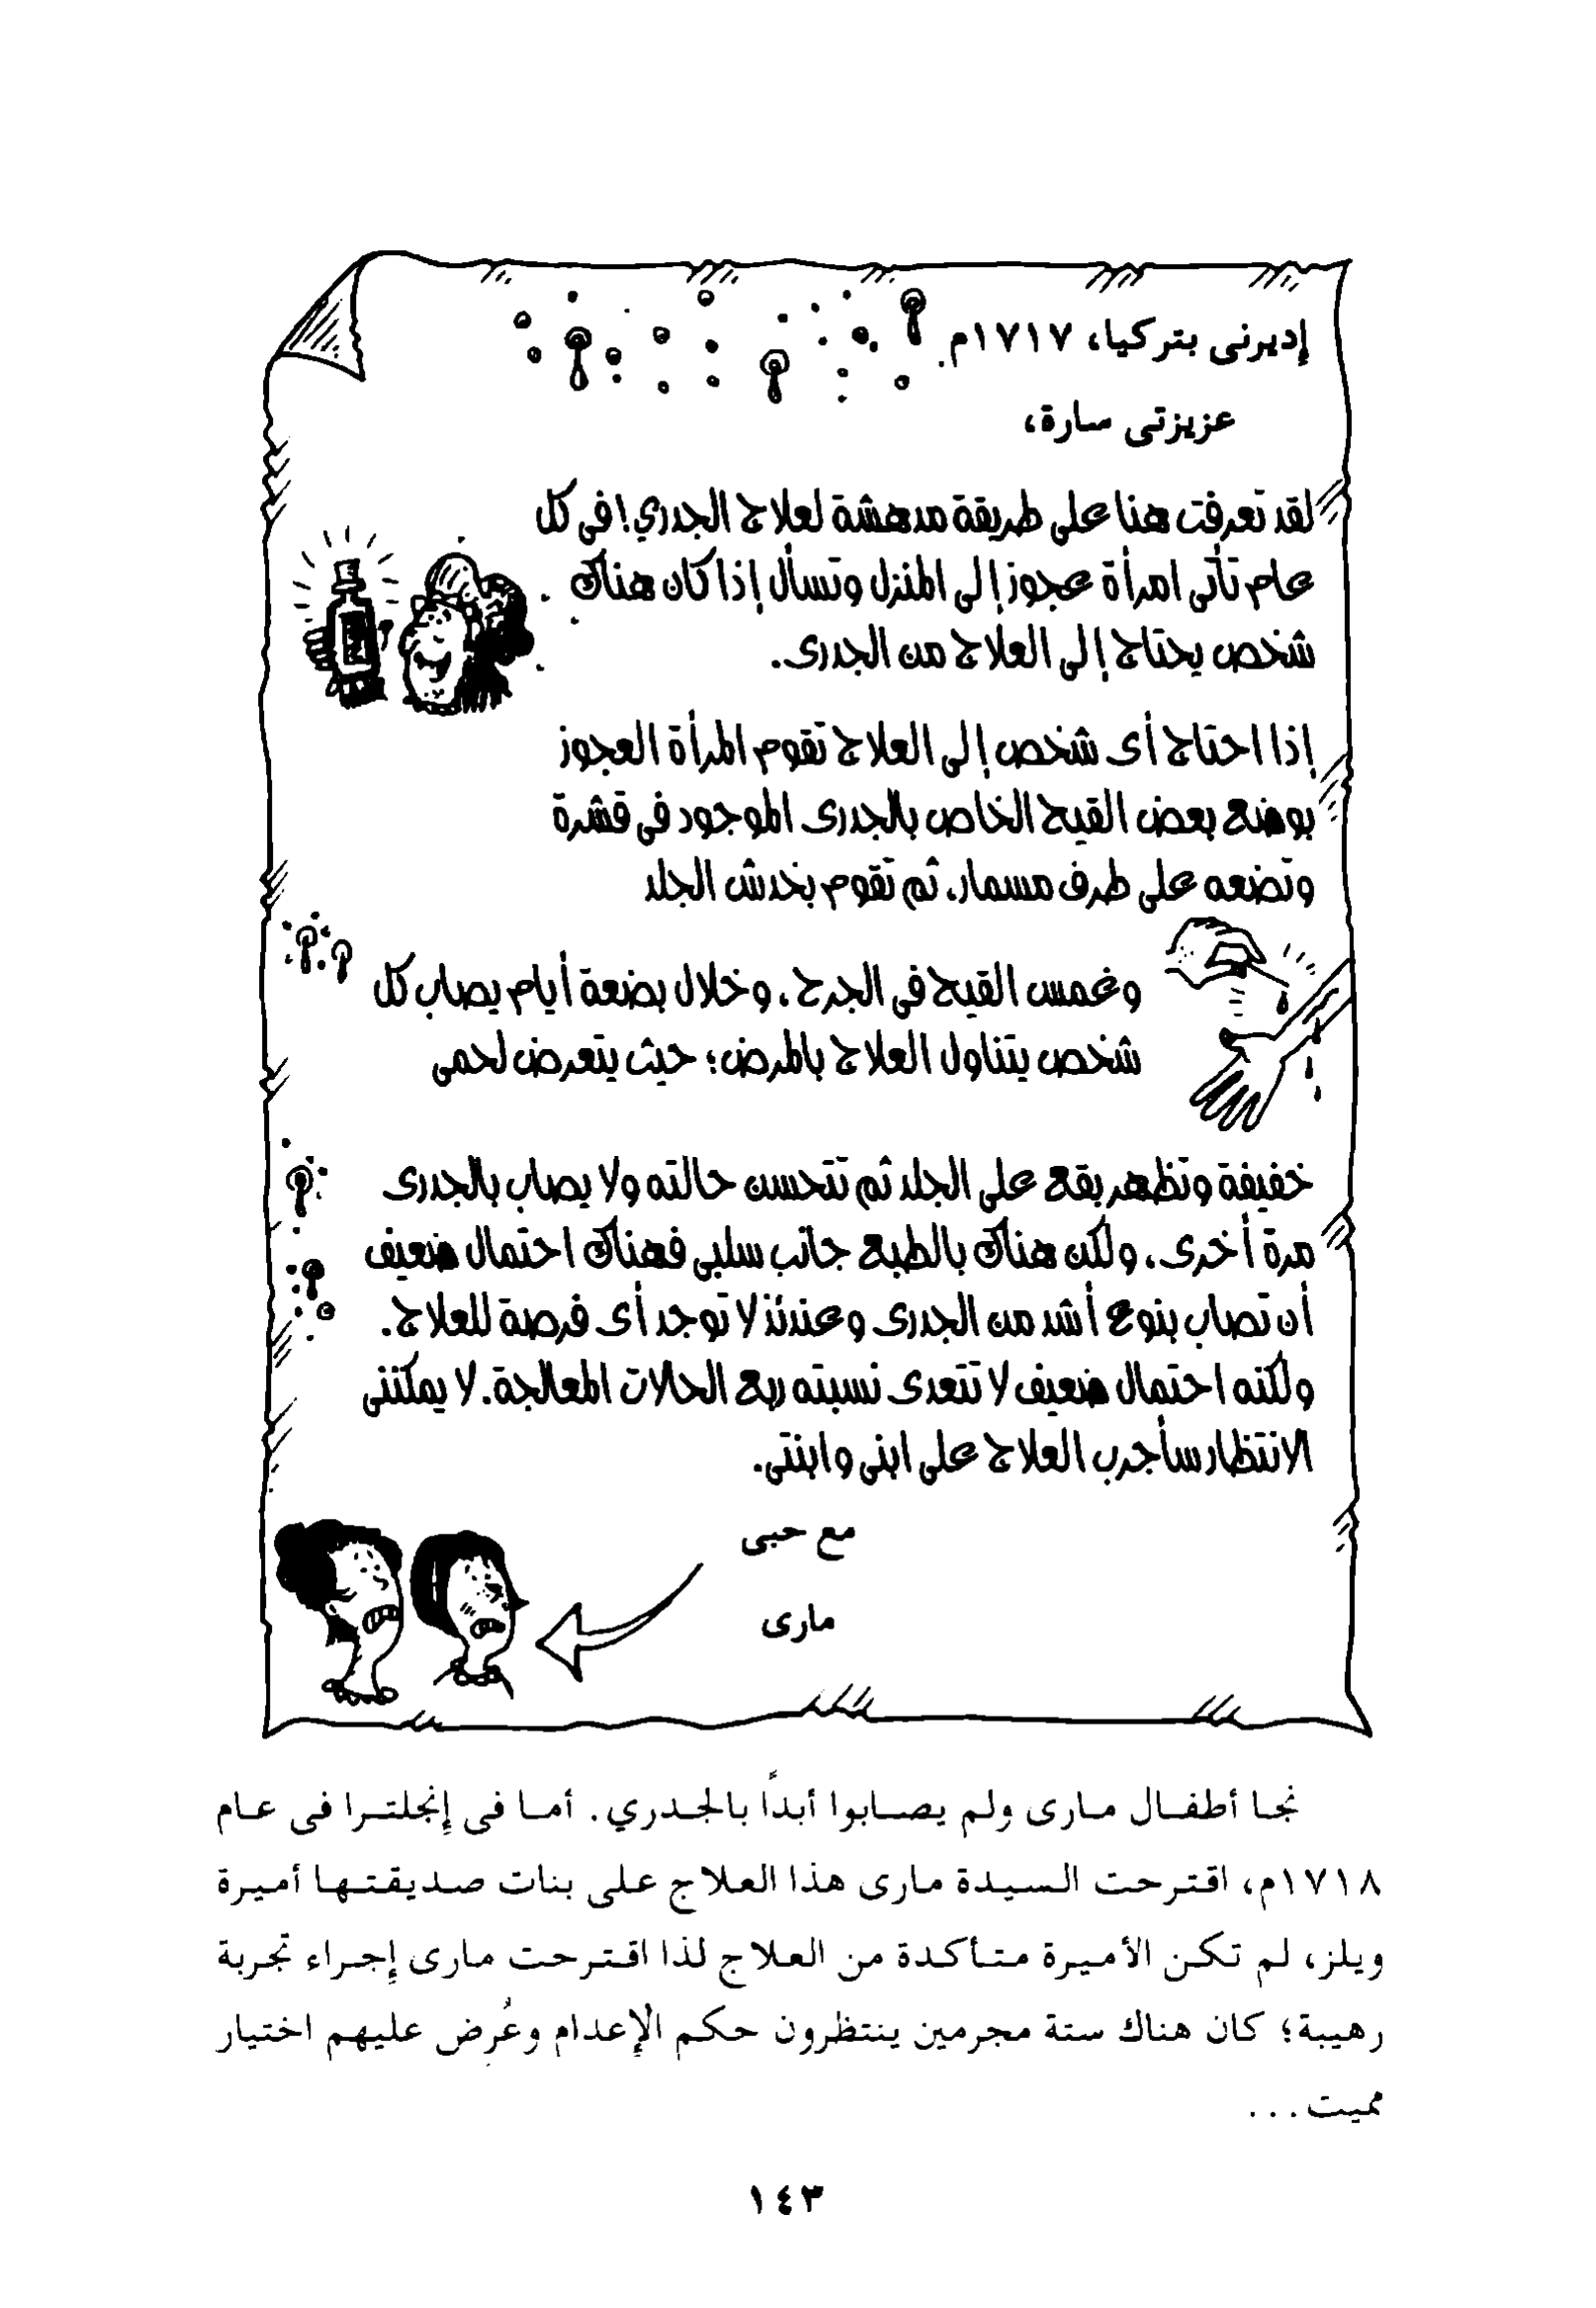 إديرنى بتركيا، ١٧١٧م.
عزيزتى سارة،
لقد تعرفت هنا على طريقة مدهشة لعلاج الجدري! فى كل
عام تأتى امرأة عجوز إلى المنزل وتسأل إذا كان هناك
شخص يحتاج إلى العلاج من الجدرى.
إذا احتاج أى شخص إلى العلاج تقوم المرأة العجوز
بوضع بعض القيح الخاص بالجدرى الموجود فى قشرة
وتضعه على طرف مسمار، ثم تقوم بخدش الجلد
وغمس القيح فى الجرح، وخلال بضعة أيام يصاب كل
شخص يتناول العلاج بالمرض؛ حيث يتعرض لحمى
خفيفة وتظهر بقع على الجلد ثم تتحسن حالته ولا يصاب بالجدرى
مرة أخرى، ولكن هناك بالطبع جانب سلبى فهناك احتمال ضعيف
أن تصاب بنوع أشد من الجدرى وعندئذ لا توجد أى فرصة للعلاج.
ولكنه احتمال ضعيف لا تتعدى نسبته ربع الحالات المعالجة. لا يمكننى
الانتظار سأجرب العلاج على ابنى وابنتى.
مع حبى
مارى
نجا أطفال مارى ولم يصابوا أبداً بالجدري. أما فى إنجلترا فى عام
١٧١٨م، اقترحت السيدة مارى هذا العلاج على بنات صديقتها أميرة
ويلز، لم تكن الأميرة متأكدة من العلاج لذا اقترحت مارى إجراء تجربة
رهيبة؛ كان هناك ستة مجرمين ينتظرون حكم الإعدام وعُرض عليهم اختيار
مميت...
١٤٣